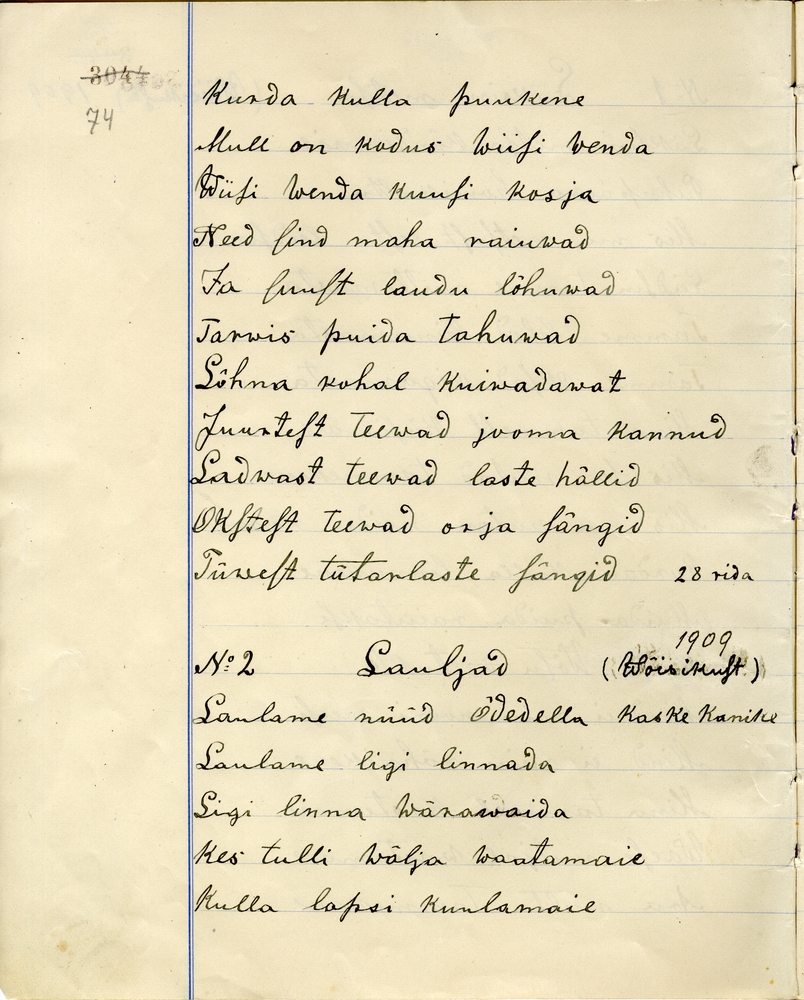 3044
74
Kurda kulla puukene
Mull on kodus wiisi wenda
Wiisi wenda kuusi kosja
Need sind maha raiuwad
Ja suust laudu lõhuwad
Tarwis puida tahuwad
Lõhna kohal kuiwadawat
Juurtest teewad jooma kannud
Ladwast teewad laste hällid
Okstest teewad orja sängid
Tüwest tütarlaste sängid 28 rida
1909
No 2 Lauljad (Wõisikust)
Laulame nüüd Õdedella Kaske Kanike
Laulame ligi linnada
Ligi linna wärawaida
Kes tulli wälja waatamaie
Kulla lapsi kuulamaie